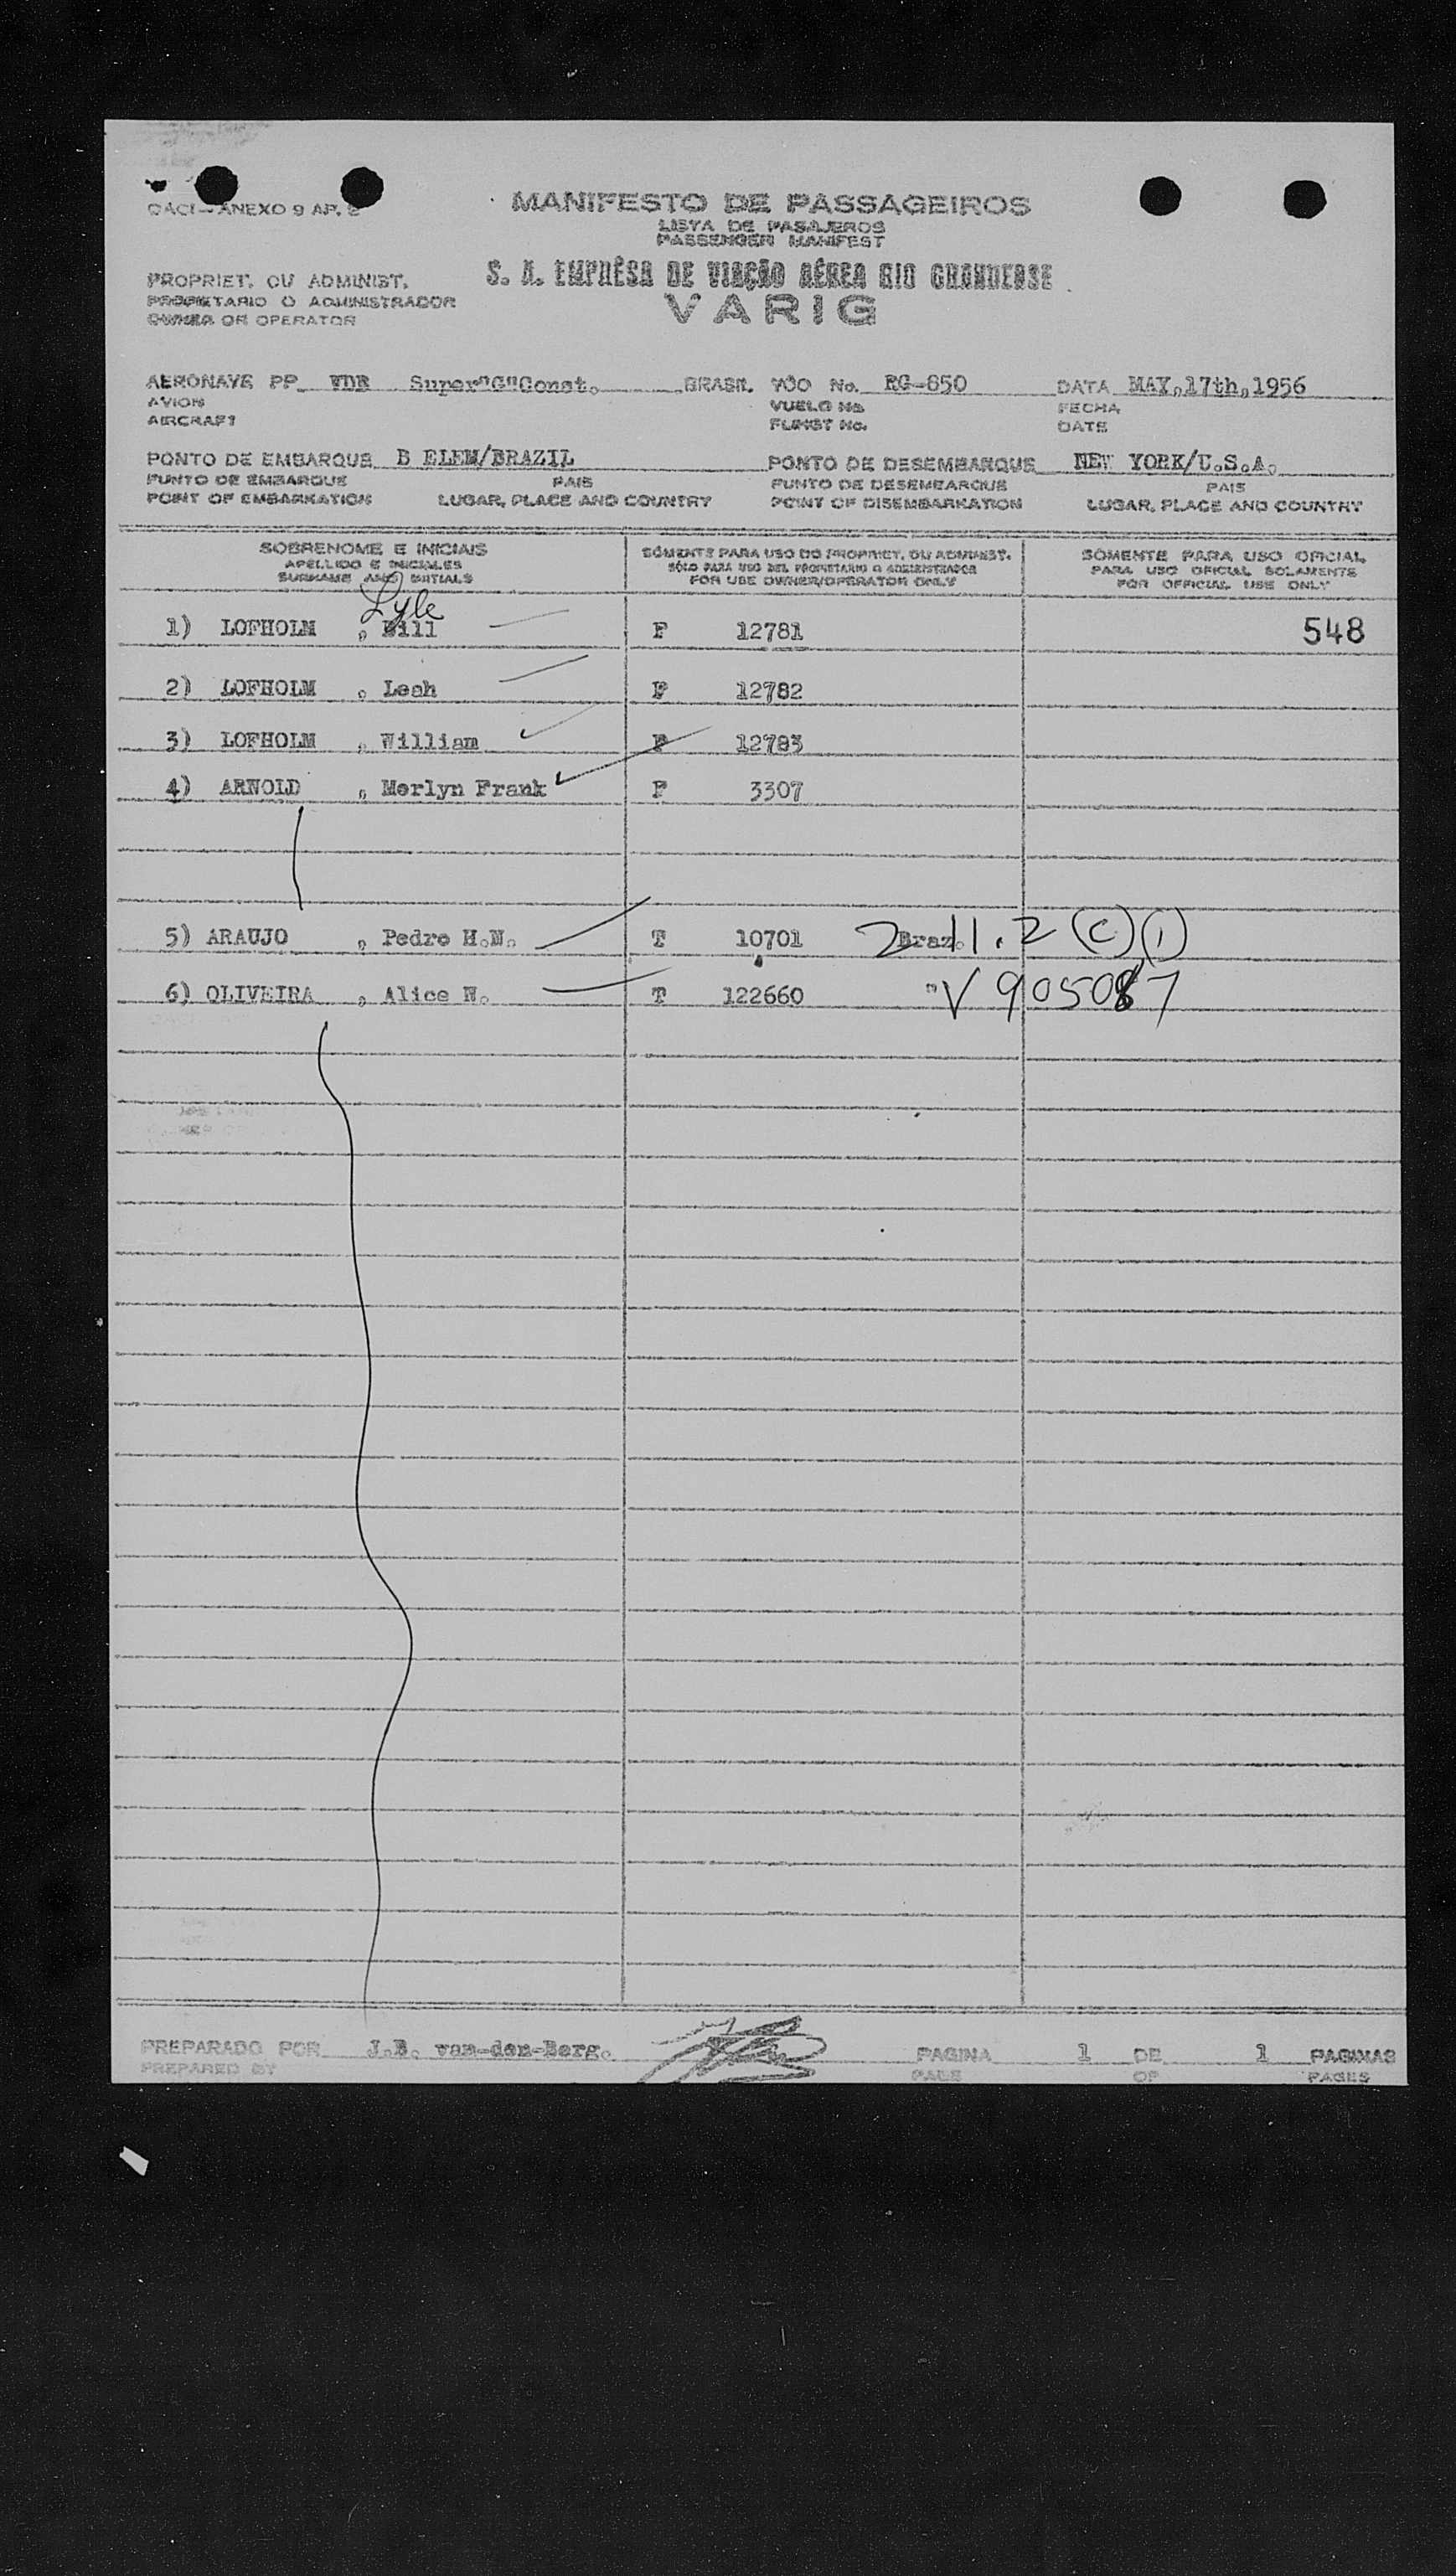 OACI - ANEXO 9 AP. 2
MANIFESTO DE PASSAGEIROS
LISTA DE PASAJEROS
PASSENGER MANIFEST
PROPRIET. OU ADMINIST.
PROPIETARIO O ADMINISTRADOR
OWNER OR OPERATOR
S. A. EMPRÊSA DE VIAÇÃO AÉREA RIO GRANDENSE
VARIG
AERONAVE PP VDR Super"G"Const. BRASIL VÔO No. RG-850 DATA MAY,17th,1956
AVION VUELO No. FECHA
AIRCRAFT FLIGHT No. DATE
PONTO DE EMBARQUE B ELEM/BRAZIL PONTO DE DESEMBARQUE NEW YORK/U.S.A.
PUNTO DE EMBARQUE PAIS PUNTO DE DESEMBARQUE PAIS
POINT OF EMBARKATION LUGAR, PLACE AND COUNTRY POINT OF DISEMBARKATION LUGAR, PLACE AND COUNTRY
SOBRENOME E INICIAIS SÓMENTE PARA USO DO PROPRIET. OU ADMINIST. SÓMENTE PARA USO OFICIAL
APELLIDO E INICIALES SÓLO PARA USO DEL PROPIETARIO O ADMINISTRADOR PARA USO OFICIAL SOLAMENTE
SURNAME AND INITIALS FOR USE OWNER/OPERATOR ONLY FOR OFFICIAL USE ONLY
Lyle
1) LOFHOLM , Bill F 12781 548
2) LOFHOLM , Leah F 12782
3) LOFHOLM , William F 12783
4) ARNOLD , Merlyn Frank F 3307
5) ARAUJO , Pedro H.N. T 10701 Braz. 211.2 (C) (1)
6) OLIVEIRA , Alice N. T 122660 " V 905087
PREPARADO POR J.B. van-den-Berg. PAGINA 1 DE 1 PAGINAS
PREPARED BY PAGE OF PAGES